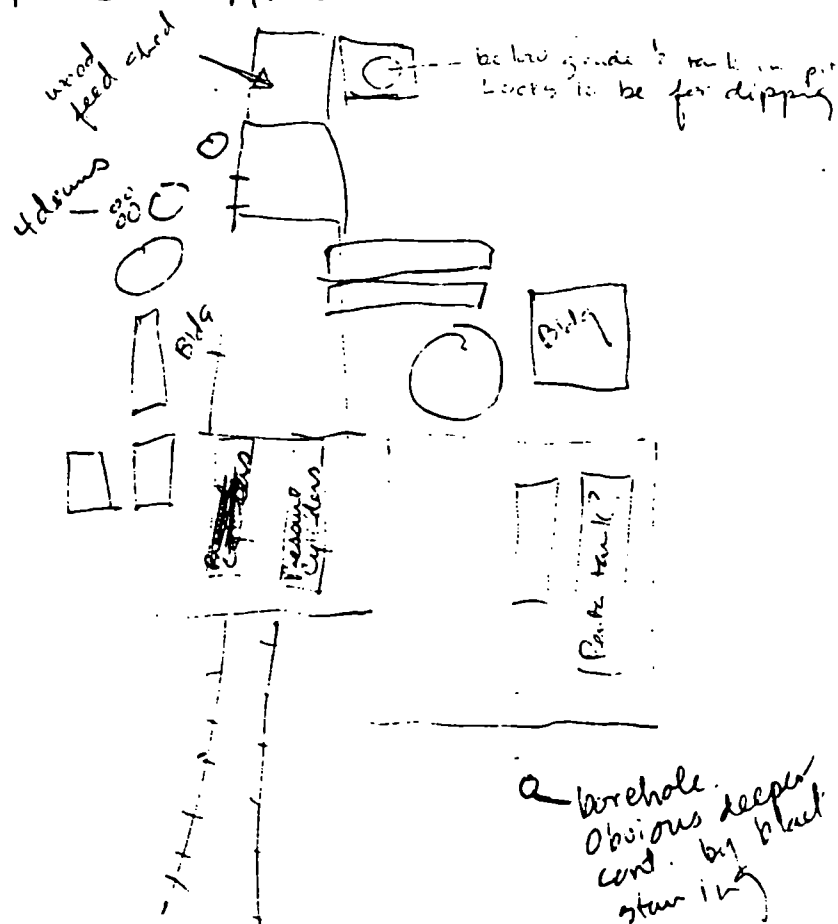 wood
feed shed
below grade? tank in pit
Looks to be for dipping
4 drums
Bldg
Bldg
Pressure
Cylinders
tank?
borehole.
Obvious deeper
cont. by black
staining